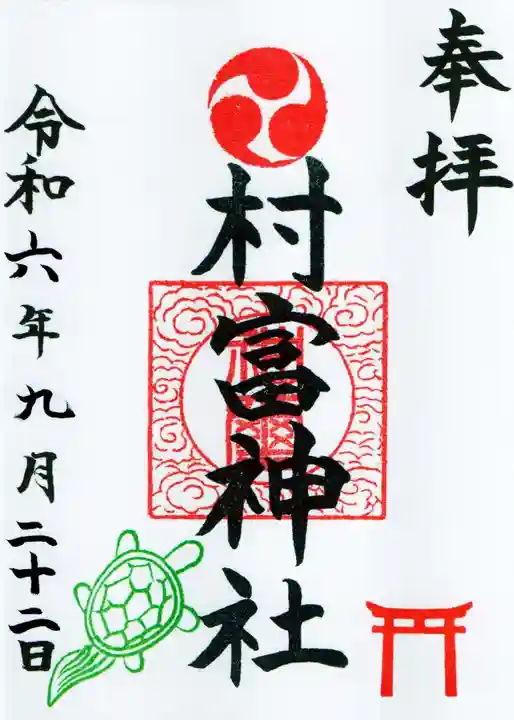 奉拝
村富神社
令和六年九月二十二日